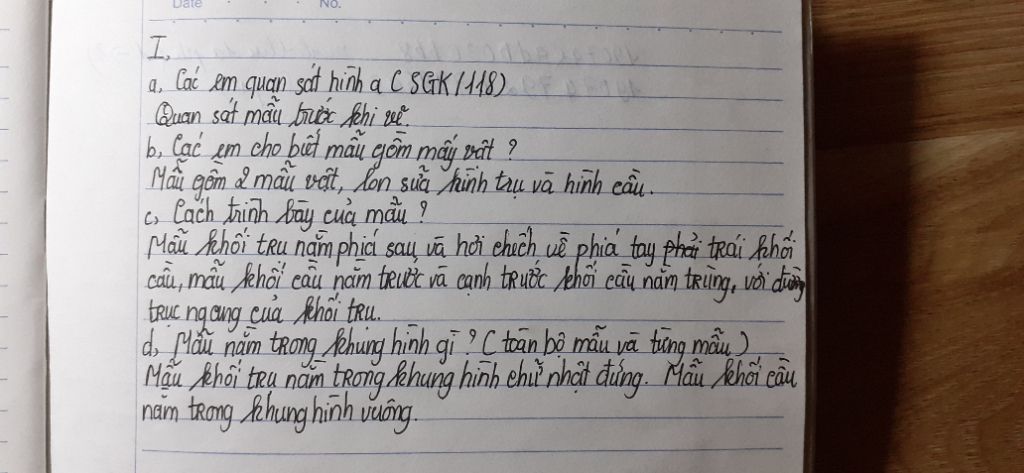 Date No.
I,
a, Các em quan sát hình a ( SGK/118)
Quan sát mẫu trước khi vẽ.
b, Các em cho biết mẫu gồm mấy vật ?
Mẫu gồm 2 mẫu vật, lon sữa hình trụ và hình cầu.
c, Cách trình bày của mẫu ?
Mẫu khối trụ nằm phía sau, và hơi chếch về phía tay phải trái khối
cầu, mẫu khối cầu nằm trước và cạnh trước khối cầu nằm trùng, với đường
trục ngang của khối trụ.
d, Mẫu nằm trong khung hình gì ? ( toàn bộ mẫu và từng mẫu )
Mẫu khối trụ nằm trong khung hình chữ nhật đứng. Mẫu khối cầu
nằm trong khung hình vuông.